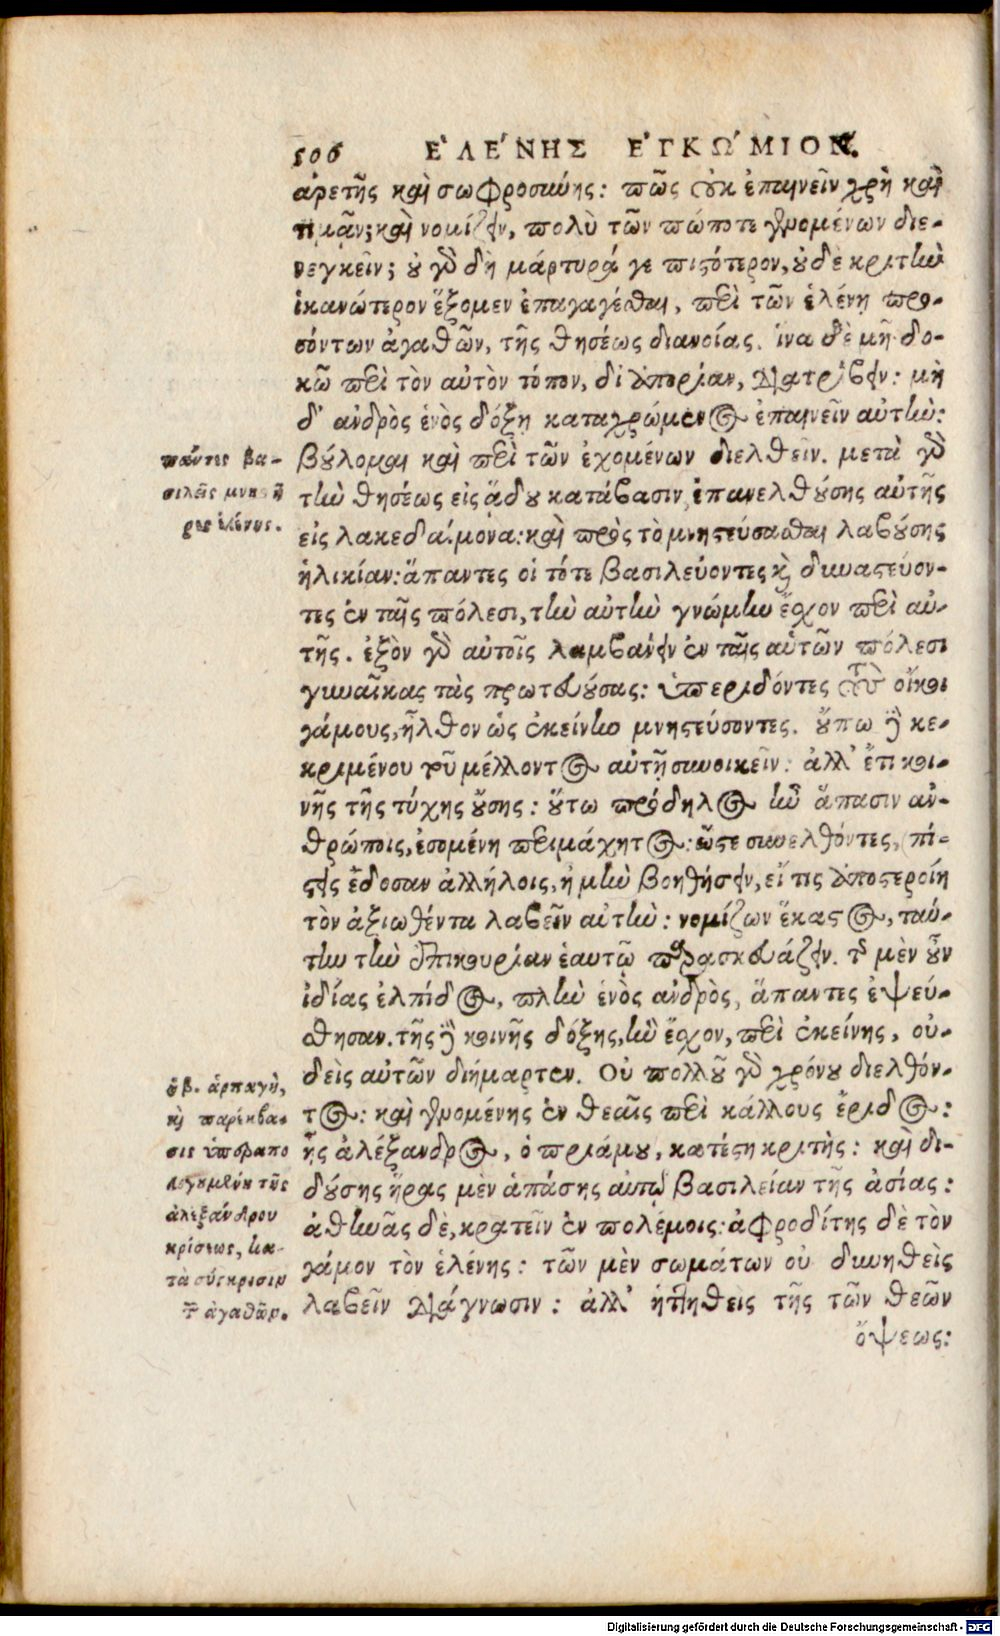 506 ἙΛΈΝΗΣ ἘΓΚΏΜΙΟΝ.
ἀρετῆς καὶ σωφροσύνης: πῶς οὐκ ἐπαινεῖν χρὴ καὶ
τιμᾶν; καὶ νομίζειν, πολὺ τῶν πώποτε γενομένων διε-
νεγκεῖν; οὐ γὰρ δὴ μάρτυρά γε πιστότερον, οὐδὲ κριτὴν
ἱκανώτερον ἕξομεν ἐπαγαγέσθαι, περὶ τῶν ἑλένῃ προ-
σόντων ἀγαθῶν, τῆς θησέως διανοίας. ἵνα δὲ μὴ δο-
κῶ περὶ τὸν αὐτὸν τόπον, δι' ἀπορίαν, διατρίβειν: μὴ
δ' ἀνδρὸς ἑνὸς δόξῃ καταχρώμενος ἐπαινεῖν αὐτὴν:
βούλομαι καὶ περὶ τῶν ἐχομένων διελθεῖν. μετὰ γὰρ
τὴν θησέως εἰς ᾅδου κατάβασιν, ἐπανελθούσης αὐτῆς
εἰς λακεδαίμονα: καὶ πρὸς τὸ μνηστεύσασθαι λαβούσης
ἡλικίαν: ἅπαντες οἱ τότε βασιλεύοντες καὶ δυναστεύον-
τες ἐν ταῖς πόλεσι, τὴν αὐτὴν γνώμην ἔχον περὶ αὐ-
τῆς. ἐξὸν γὰρ αὐτοῖς λαμβάνειν ἐν ταῖς αὑτῶν πόλεσι
γυναῖκας τὰς πρωτευούσας: ὑπεριδόντες τοὺς οἴκοι
γάμους, ἦλθον ὡς ἐκείνην μνηστεύσοντες. οὔπω δὲ κε-
κριμένου τοῦ μέλλοντος αὐτῇ συνοικεῖν: ἀλλ' ἔτι κοι-
νῆς τῆς τύχης οὔσης: οὕτω πρόδηλος ἦν ἅπασιν ἀν-
θρώποις, ἐσομένη περιμάχητος: ὥστε συνελθόντες, πί-
στεις ἔδοσαν ἀλλήλοις, ἦ μὴν βοηθήσειν, εἴ τις ἀποστεροίη
τὸν ἀξιωθέντα λαβεῖν αὐτὴν: νομίζων ἕκαστος, ταύ-
την τὴν ἐπικουρίαν ἑαυτῷ παρασκευάζειν. τῆς μὲν οὖν
ἰδίας ἐλπίδος, πλὴν ἑνὸς ἀνδρὸς, ἅπαντες ἐψεύ-
σθησαν. τῆς δὲ κοινῆς δόξης, ἣν ἔχον, περὶ ἐκείνης, οὐ-
δεὶς αὐτῶν διήμαρτεν. Οὐ πολλοῦ γὰρ χρόνου διελθόν-
τος: καὶ γενομένης ἐν θεαῖς περὶ κάλλους ἔριδος:
ἧς ἀλέξανδρος, ὁ πριάμου, κατέστη κριτὴς: καὶ δι-
δούσης ἥρας μὲν ἁπάσης αὐτῷ βασιλείαν τῆς ἀσίας:
ἀθηνᾶς δὲ, κρατεῖν ἐν πολέμοις: ἀφροδίτης δὲ τὸν
γάμον τὸν ἑλένης: τῶν μὲν σωμάτων οὐ δυνηθεὶς
λαβεῖν διάγνωσιν: ἀλλ' ἡττηθεὶς τῆς τῶν θεῶν
ὄψεως:
πάντες βα-
σιλεῖς μνηστῆ
ρες ἑλένης.
ἁρπαγὴ,
καὶ παρέκβα-
σις
λογουμένη τῆς
ἀλεξάνδρου
κρίσεως, κα-
τὰ σύγκρισιν
τῶν ἀγαθῶν.
Digitalisierung gefördert durch die Deutsche Forschungsgemeinschaft - DFG